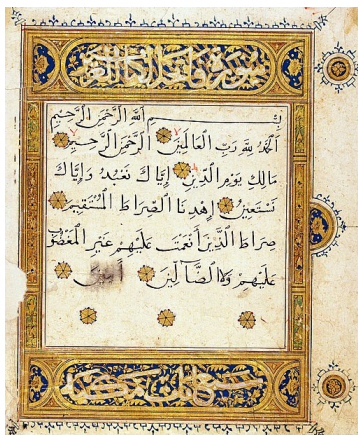 سورة فاتحة الكتاب
بسم الله الرَّحْمَنِ الرَّحِيمِ
اَلْحَمْدُ لِلَّهِ رَبِّ الْعَالَمِينَ الرَّحْمَنِ الرَّحِيمِ
مَالِكِ يَوْمِ الدِّينِ إِيَّاكَ نَعْبُدُ وَإِيَّاكَ
نَسْتَعِينُ اِهْدِنَا الصِّرَاطَ الْمُسْتَقِيمَ
صِرَاطَ الَّذِينَ أَنْعَمْتَ عَلَيْهِمْ غَيْرِ الْمَغْضُوبِ
عَلَيْهِمْ وَلَا الضَّالِّينَ